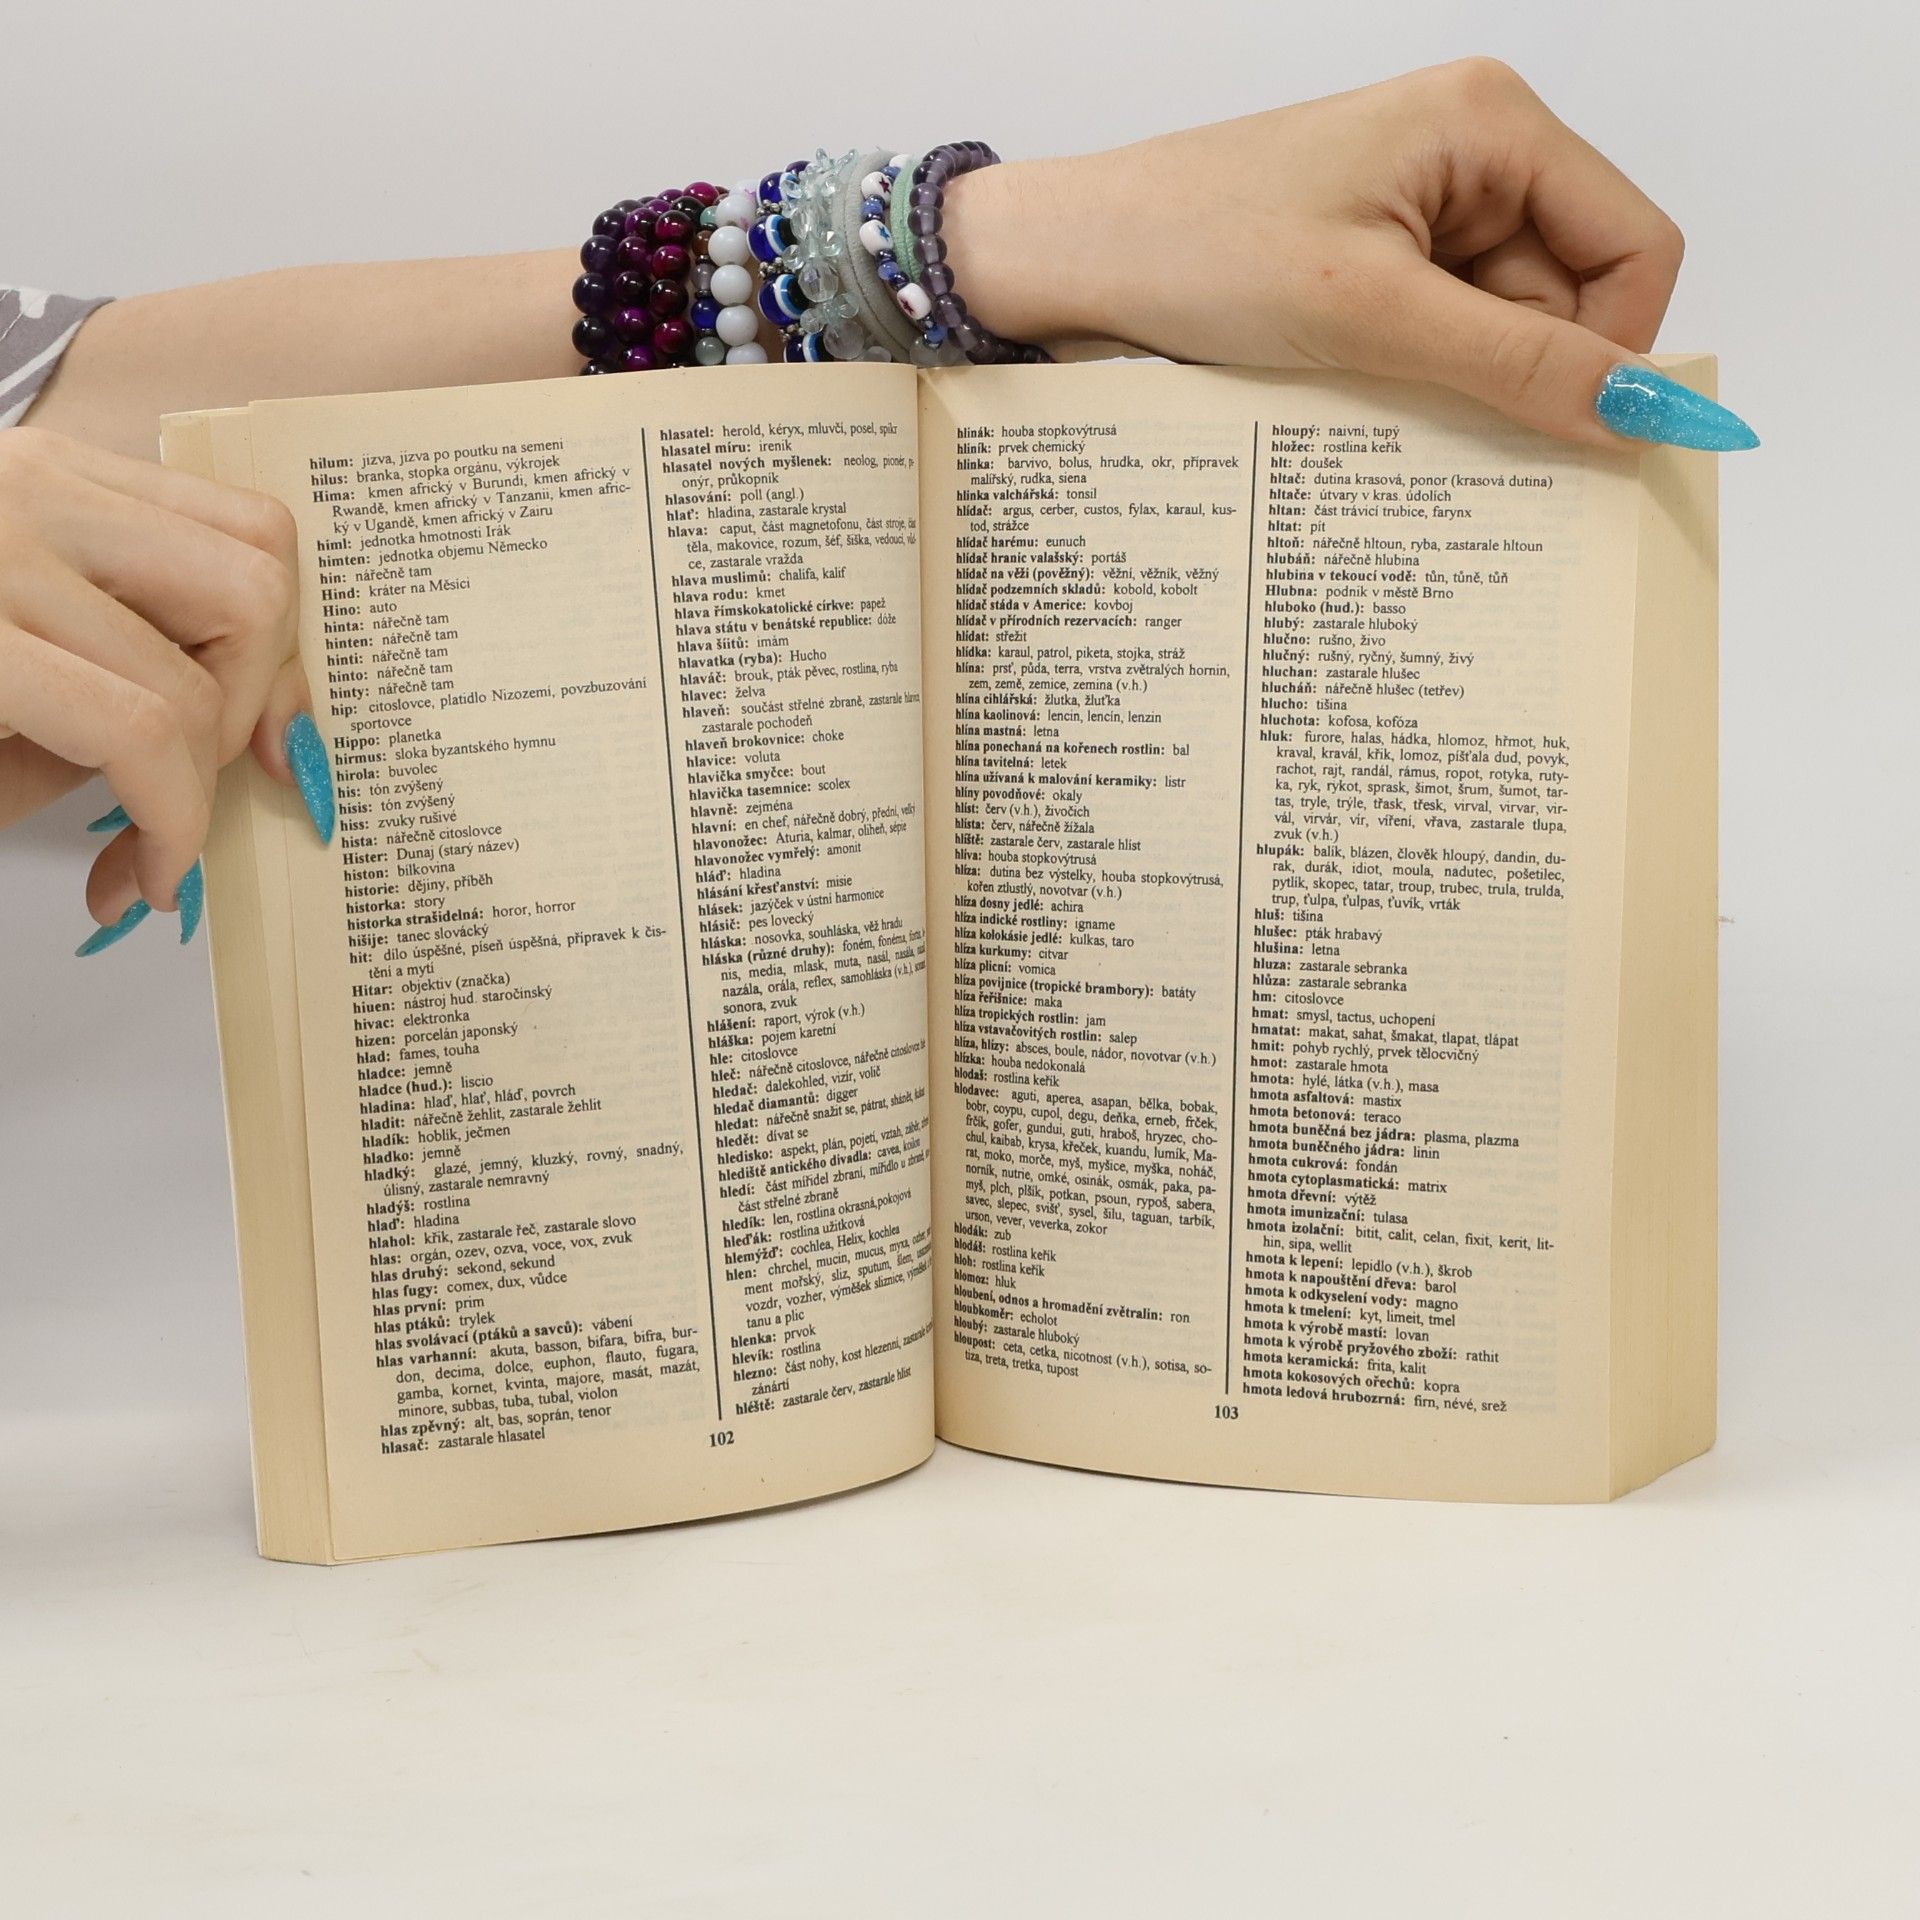 hilum: jizva, jizva po poutku na semeni
hilus: branka, stopka orgánu, výkrojek
Hima: kmen africký v Burundi, kmen africký v
Rwandě, kmen africký v Tanzanii, kmen afric-
ký v Ugandě, kmen africký v Zairu
himl: jednotka hmotnosti Irák
himten: jednotka objemu Německo
hin: nářečně tam
Hind: kráter na Měsíci
Hino: auto
hinta: nářečně tam
hinten: nářečně tam
hinti: nářečně tam
hinto: nářečně tam
hinty: nářečně tam
hip: citoslovce, platidlo Nizozemí, povzbuzování
sportovce
Hippo: planetka
hirmus: sloka byzantského hymnu
hirola: buvolec
his: tón zvýšený
hisis: tón zvýšený
hiss: zvuky rušivé
hista: nářečně citoslovce
Hister: Dunaj (starý název)
histon: bílkovina
historie: dějiny, příběh
historka: story
historka strašidelná: horor, horror
hišije: tanec slovácký
hit: dílo úspěšné, píseň úspěšná, přípravek k čis-
tění a mytí
Hitar: objektiv (značka)
hiuen: nástroj hud. staročínský
hivac: elektronka
hizen: porcelán japonský
hlad: fames, touha
hladce: jemně
hladce (hud.): liscio
hladina: hlaď, hlať, hláď, povrch
hladit: nářečně žehlit, zastarale žehlit
hladík: hoblík, ječmen
hladko: jemně
hladký: glazé, jemný, kluzký, rovný, snadný,
úlisný, zastarale nemravný
hladýš: rostlina
hlaď: hladina
hlahol: křik, zastarale řeč, zastarale slovo
hlas: orgán, ozev, ozva, voce, vox, zvuk
hlas druhý: sekond, sekund
hlas fugy: comex, dux, vůdce
hlas první: prim
hlas ptáků: trylek
hlas svolávací (ptáků a savců): vábení
hlas varhanní: akuta, basson, bifara, bifra, bur-
don, decima, dolce, euphon, flauto, fugara,
gamba, kornet, kvinta, majore, masát, mazát,
minore, subbas, tuba, tubal, violon
hlas zpěvný: alt, bas, soprán, tenor
hlasač: zastarale hlasatel
hlasatel: herold, kéryx, mluvčí, posel, spíkr
hlasatel míru: irenik
hlasatel nových myšlenek: neolog, pionér, pi-
onýr, průkopník
hlasování: poll (angl.)
hlať: hladina, zastarale krystal
hlava: caput, část magnetofonu, část stroje, část
těla, makovice, rozum, šéf, šiška, vedoucí, vůd-
ce, zastarale vražda
hlava muslimů: chalifa, kalif
hlava rodu: kmet
hlava římskokatolické církve: papež
hlava státu v benátské republice: dóže
hlava šíitů: imám
hlavatka (ryba): Hucho
hlaváč: brouk, pták pěvec, rostlina, ryba
hlavec: želva
hlaveň: součást střelné zbraně, zastarale hlavice,
zastarale pochodeň
hlaveň brokovnice: choke
hlavice: voluta
hlavička smyčce: bout
hlavička tasemnice: scolex
hlavně: zejména
hlavní: en chef, nářečně dobrý, přední, velký
hlavonožec: Aturia, kalmar, oliheň, sépie
hlavonožec vymřelý: amonit
hláď: hladina
hlásání křesťanství: misie
hlásek: jazýček v ústní harmonice
hlásič: pes lovecký
hláska: nosovka, souhláska, věž hradu
hláska (různé druhy): foném, fonéma,
nis, media, mlask, muta, nasál, nasála,
nazála, orála, reflex, samohláska (v.h.),
sonora, zvuk
hlášení: raport, výrok (v.h.)
hláška: pojem karetní
hle: citoslovce
hleč: nářečně citoslovce, nářečně citoslovce
hledač: dalekohled, vizír, volič
hledač diamantů: digger
hledat: nářečně snažit se, pátrat, shánět,
hledět: dívat se
hledisko: aspekt, plán, pojetí, vztah, záběr,
hlediště antického divadla: cavea, koilon
hledí: část mířidel zbraní, mířidlo u zbraně,
část střelné zbraně
hledík: len, rostlina okrasná,pokojová
hleďák: rostlina užitková
hlemýžď: cochlea, Helix, kochlea
hlen: chrchel, mucin, mucus, myxa,
ment mořský, sliz, sputum, šlem,
vozdr, vozher, výměšek sliznice, výměšek
tanu a plic
hlenka: prvok
hlevík: rostlina
hlezno: část nohy, kost hlezenní, zastarale
zánártí
hléště: zastarale červ, zastarale hlíst
102
hlinák: houba stopkovýtrusá
hliník: prvek chemický
hlinka: barvivo, bolus, hrudka, okr, přípravek
malířský, rudka, siena
hlinka valchářská: tonsil
hlídač: argus, cerber, custos, fylax, karaul, kus-
tod, strážce
hlídač harému: eunuch
hlídač hranic valašský: portáš
hlídač na věži (pověžný): věžní, věžník, věžný
hlídač podzemních skladů: kobold, kobolt
hlídač stáda v Americe: kovboj
hlídač v přírodních rezervacích: ranger
hlídat: střežit
hlídka: karaul, patrol, piketa, stojka, stráž
hlína: prsť, půda, terra, vrstva zvětralých hornin,
zem, země, zemice, zemina (v.h.)
hlína cihlářská: žlutka, žluťka
hlína kaolinová: lencin, lencín, lenzin
hlína mastná: letna
hlína ponechaná na kořenech rostlin: bal
hlína tavitelná: letek
hlína užívaná k malování keramiky: listr
hlíny povodňové: okaly
hlíst: červ (v.h.), živočich
hlísta: červ, nářečně žížala
hlíště: zastarale červ, zastarale hlíst
hlíva: houba stopkovýtrusá
hlíza: dutina bez výstelky, houba stopkovýtrusá,
kořen ztlustlý, novotvar (v.h.)
hlíza dosny jedlé: achira
hlíza indické rostliny: igname
hlíza kolokásie jedlé: kulkas, taro
hlíza kurkumy: citvar
hlíza plicní: vomica
hlíza povijnice (tropické brambory): batáty
hlíza řeřišnice: maka
hlíza tropických rostlin: jam
hlíza vstavačovitých rostlin: salep
hlíza, hlízy: absces, boule, nádor, novotvar (v.h.)
hlízka: houba nedokonalá
hlodaš: rostlina keřík
hlodavec: aguti, aperea, asapan, bělka, bobak,
bobr, coypu, cupol, degu, deňka, erneb, frček,
frčík, gofer, gundui, guti, hraboš, hryzec, cho-
chul, kaibab, krysa, křeček, kuandu, lumík, Ma-
rat, moko, morče, myš, myšice, myška, noháč,
norník, nutrie, omké, osinák, osmák, paka, pa-
myš, plch, plšík, potkan, psoun, rypoš, sabera,
savec, slepec, svišť, sysel, šilu, taguan, tarbík,
urson, vever, veverka, zokor
hlodák: zub
hlodáš: rostlina keřík
hloh: rostlina keřík
hlomoz: hluk
hloubení, odnos a hromadění zvětralin: ron
hloubkoměr: echolot
hloubý: zastarale hluboký
hloupost: ceta, cetka, nicotnost (v.h.), sotisa, so-
tiza, treta, tretka, tupost
hloupý: naivní, tupý
hložec: rostlina keřík
hlt: doušek
hltač: dutina krasová, ponor (krasová dutina)
hltače: útvary v kras. údolích
hltan: část trávicí trubice, farynx
hltat: pít
hltoň: nářečně hltoun, ryba, zastarale hltoun
hlubáň: nářečně hlubina
hlubina v tekoucí vodě: tůn, tůně, tůň
Hlubna: podnik v městě Brno
hluboko (hud.): basso
hlubý: zastarale hluboký
hlučno: rušno, živo
hlučný: rušný, ryčný, šumný, živý
hluchan: zastarale hlušec
hlucháň: nářečně hlušec (tetřev)
hlucho: tišina
hluchota: kofosa, kofóza
hluk: furore, halas, hádka, hlomoz, hřmot, huk,
kraval, kravál, křik, lomoz, píšťala dud, povyk,
rachot, rajt, randál, rámus, ropot, rotyka, ruty-
ka, ryk, rykot, sprask, šimot, šrum, šumot, tar-
tas, tryle, trýle, třask, třesk, virval, virvar, vir-
vál, virvár, vír, víření, vřava, zastarale tlupa,
zvuk (v.h.)
hlupák: balík, blázen, člověk hloupý, dandin, du-
rak, durák, idiot, moula, nadutec, pošetilec,
pytlík, skopec, tatar, troup, trubec, trula, trulda,
trup, ťulpa, ťulpas, ťuvík, vrták
hluš: tišina
hlušec: pták hrabavý
hlušina: letna
hluza: zastarale sebranka
hlůza: zastarale sebranka
hm: citoslovce
hmat: smysl, tactus, uchopení
hmatat: makat, sahat, šmakat, tlapat, tlápat
hmit: pohyb rychlý, prvek tělocvičný
hmot: zastarale hmota
hmota: hylé, látka (v.h.), masa
hmota asfaltová: mastix
hmota betonová: teraco
hmota buněčná bez jádra: plasma, plazma
hmota buněčného jádra: linin
hmota cukrová: fondán
hmota cytoplasmatická: matrix
hmota dřevní: výtěž
hmota imunizační: tulasa
hmota izolační: bitit, calit, celan, fixit, kerit, lit-
hin, sipa, wellit
hmota k lepení: lepidlo (v.h.), škrob
hmota k napouštění dřeva: barol
hmota k odkyselení vody: magno
hmota k tmelení: kyt, limeit, tmel
hmota k výrobě mastí: lovan
hmota k výrobě pryžového zboží: rathit
hmota keramická: frita, kalit
hmota kokosových ořechů: kopra
hmota ledová hrubozrná: firn, névé, srež
103